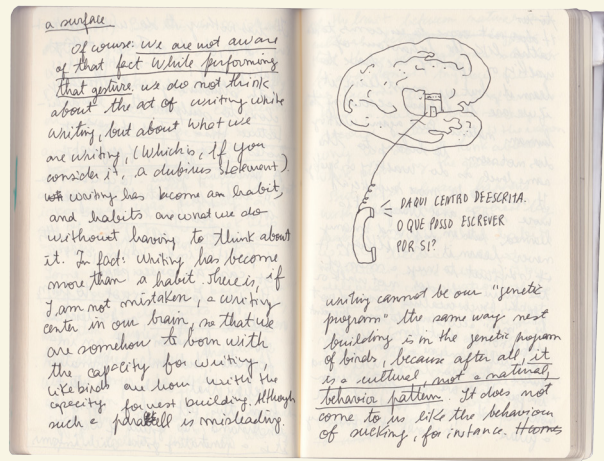 a surface.
Of course: we are not aware
of that fact while performing
that gesture. we do not think
about the act of writing while
writing, but about what we
are writing, (which is, if you
consider it, a dubious statement).
writing has become an habit,
and habits are what we do
without having to think about
it. In fact: writing has become
more than a habit. There is, if
I am not mistaken, a writing
center in our brain, so that we
are somehow to born with
the capacity for writing,
like birds are born with the
capacity for nest building. Although
such a parallell is misleading.
DAQUI CENTRO DE ESCRITA.
O QUE POSSO ESCREVER
POR SI?
writing cannot be our "genetic
program" the same way nest
building is in the genetic program
of birds, because after all, it
is a cultural, not a natural,
behavior pattern. It does not
come to us like the behaviour
of sucking, for instance.